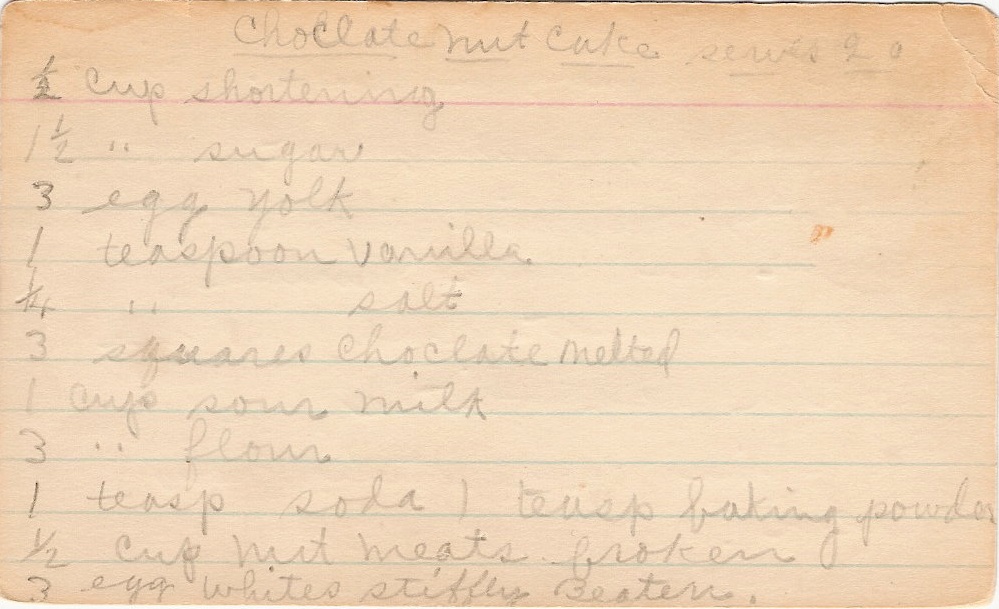 Choclate nut cake serves 20
½ cup shortening
1½ " sugar
3 egg yolk
1 teaspoon vanilla
¼ " salt
3 squares choclate melted
1 cup sour milk
3 " flour
1 teasp soda 1 teasp baking powder
½ cup nut meats broken
3 egg whites stiffly Beaten.